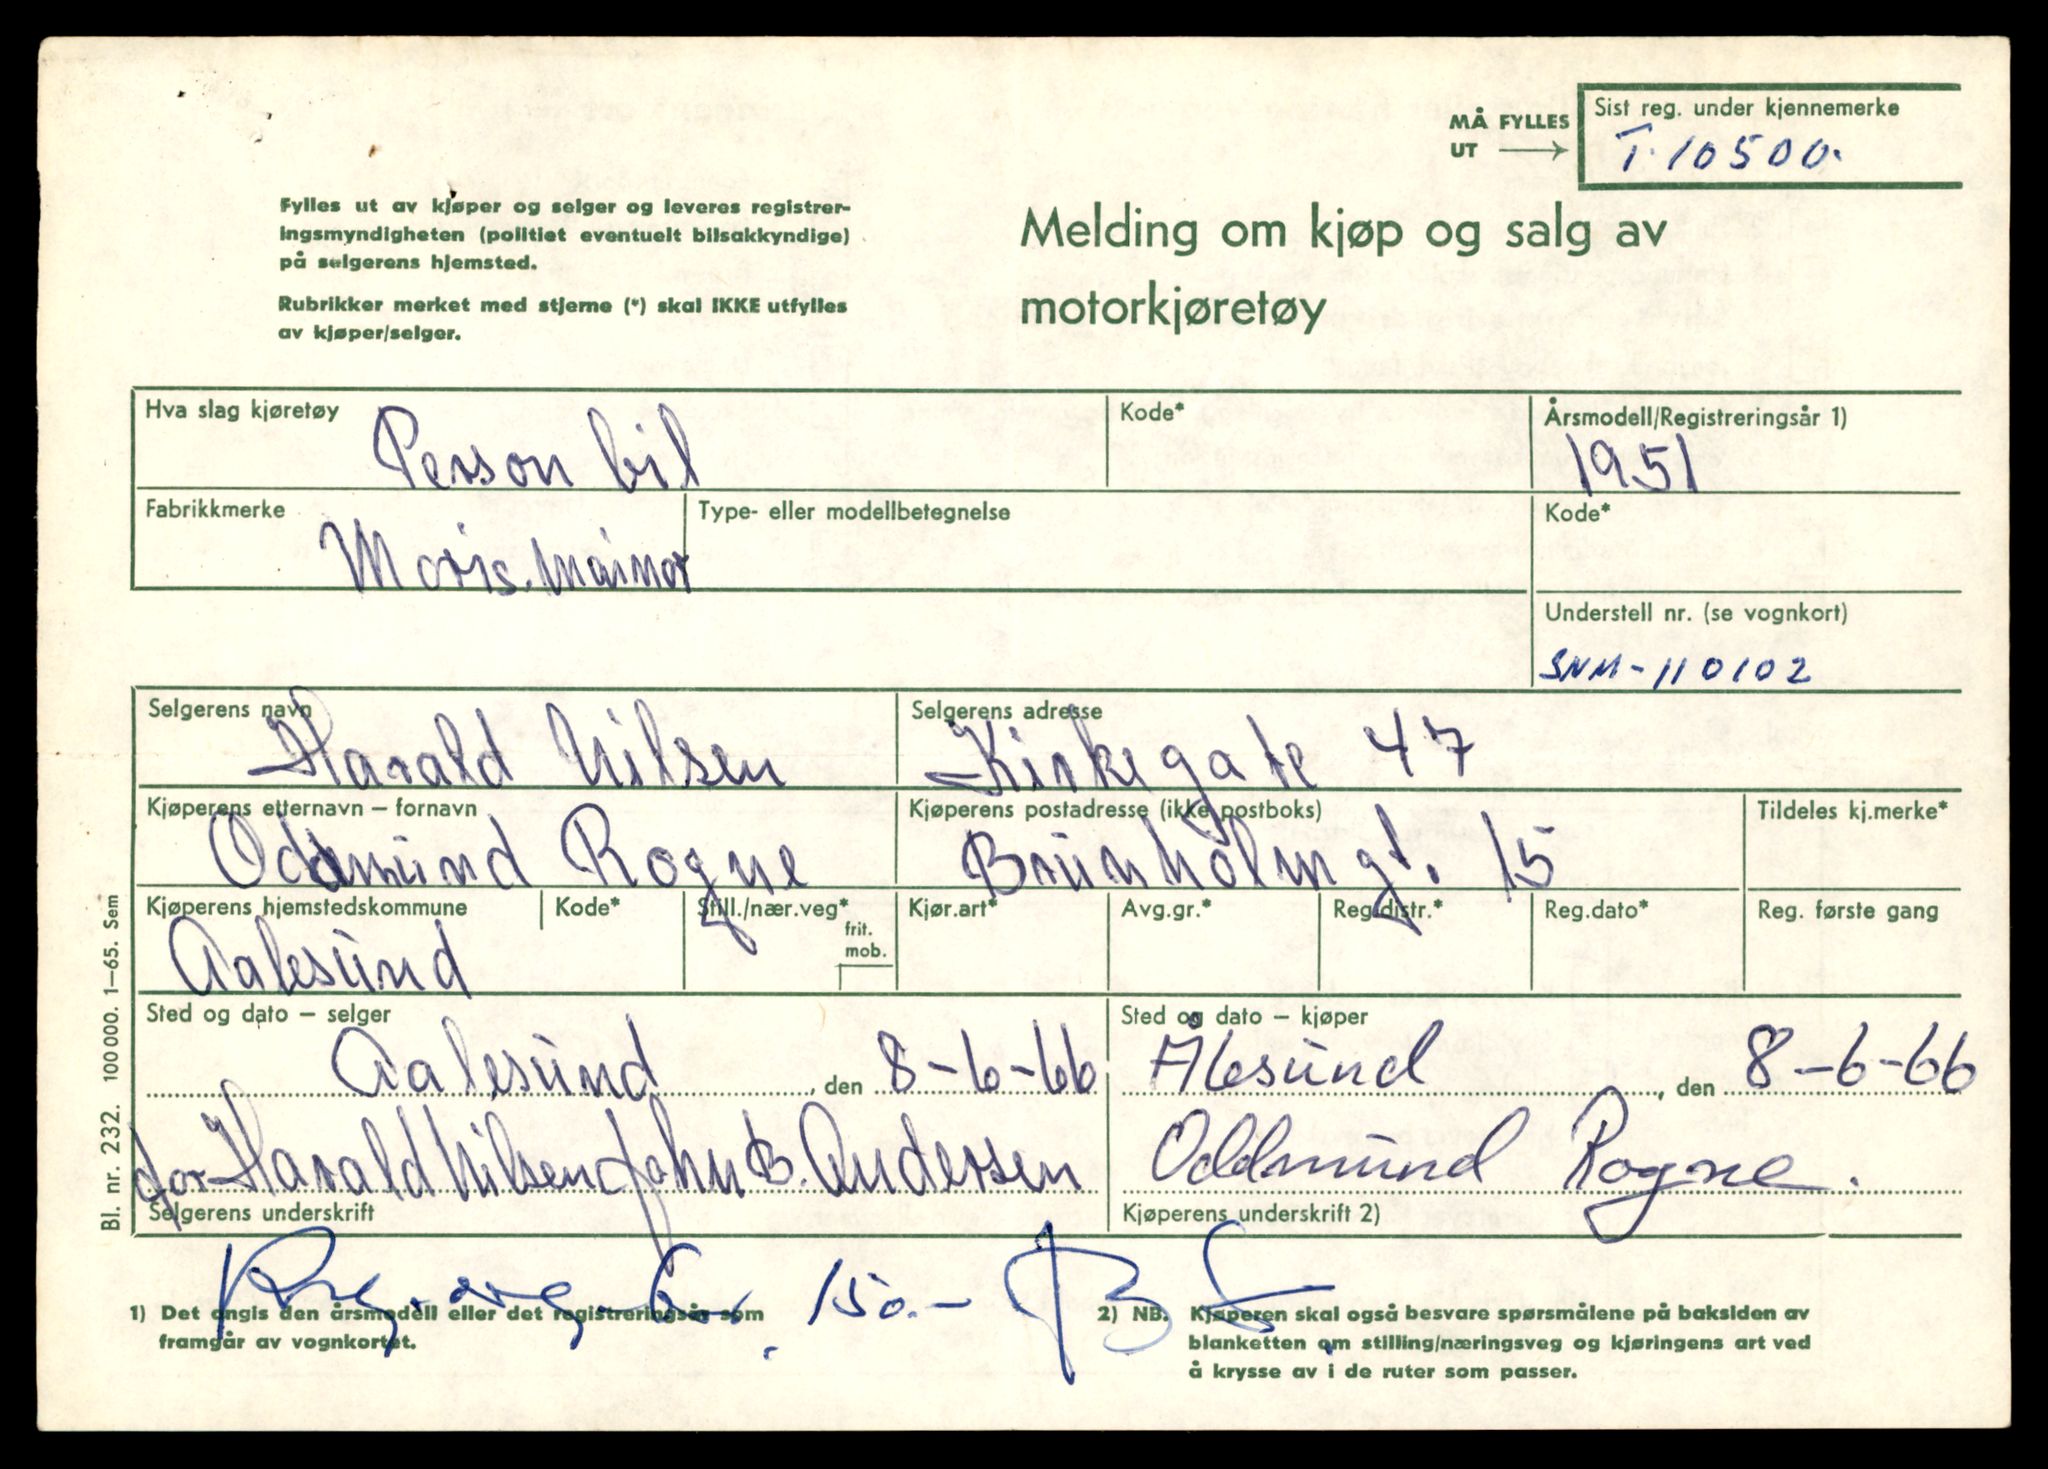 Sist reg. under kjennemerke
MÅ FYLLES
UT →
T-10500.
Fylles ut av kjøper og selger og leveres registrer-
ingsmyndigheten (politiet eventuelt bilsakkyndige)
på selgerens hjemsted.
Rubrikker merket med stjerne (*) skal IKKE utfylles
av kjøper/selger.
Melding om kjøp og salg av
motorkjøretøy
Hva slag kjøretøy
Person bil
Kode*
Årsmodell/Registreringsår 1)
1951
Fabrikkmerke
Moris. mainor
Type- eller modellbetegnelse
Kode*
Understell nr. (se vognkort)
SNM-110102
Selgerens navn
Harald Nilsen
Selgerens adresse
Kirkegate 47
Kjøperens etternavn – fornavn
Oddmund Rogne
Kjøperens postadresse (ikke postboks)
Brunholmgt. 15
Tildeles kj.merke*
Kjøperens hjemstedskommune
Aalesund
Kode*
Still./nær.veg*
frit.
mob.
Kjør.art*
Avg.gr.*
Reg.distr.*
Reg.dato*
Reg. første gang
Sted og dato – selger
Aalesund, den 8-6-66
Sted og dato – kjøper
Ålesund, den 8-6-66
for Harald Nilsen John B. Andersen
Selgerens underskrift
Oddmund Rogne.
Kjøperens underskrift 2)
150.-
1) Det angis den årsmodell eller det registreringsår som
framgår av vognkortet.
2) NB. Kjøperen skal også besvare spørsmålene på baksiden av
blanketten om stilling/næringsveg og kjøringens art ved
å krysse av i de ruter som passer.
Bl. nr. 232. 100 000. 1–65. Sem